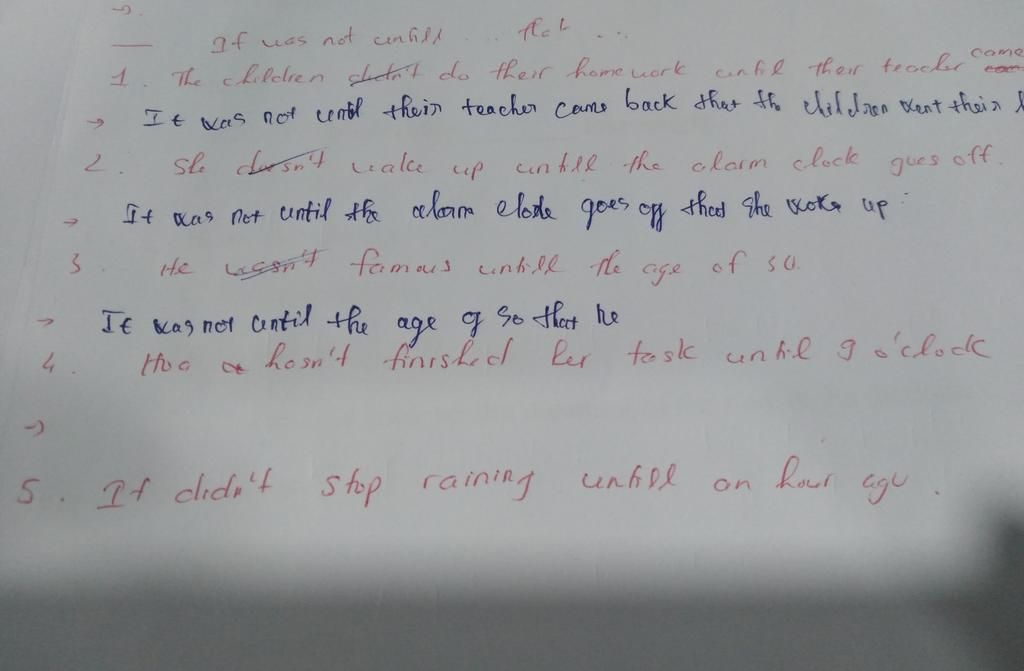 →.
— It was not untill ... that ...
1. The children didn't do their homework until their teacher came
→ It was not until their teacher came back that the children went their
2. She doesn't wake up untill the alarm clock goes off.
→ It was not until the alarm clode goes off that she woke up
3. He wasn't famous untill the age of 50.
→ It was not until the age of 50 that he
4. Hoa hasn't finished her task until 9 o'clock
→
5. It didn't stop raining untill an hour ago.